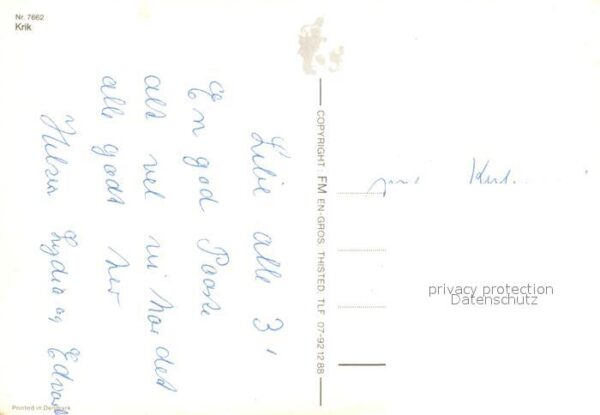 Nr. 7662
Krik
Lilie alle 3'
og
En god Paaske
alt vel vi har det
alle godt her
Hilsen Lydia og Edvard
COPYRIGHT: FM EN-GROS. THISTED. TLF 07-921288
privacy protection
Datenschutz
Printed in Denmark